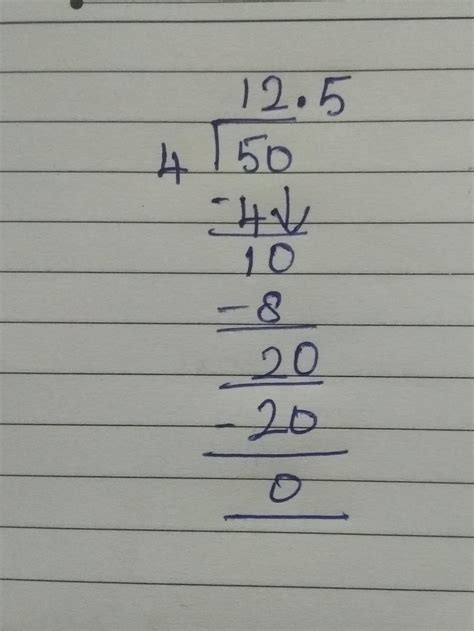 12.5
4 50
-4↓
10
-8
20
-20
0